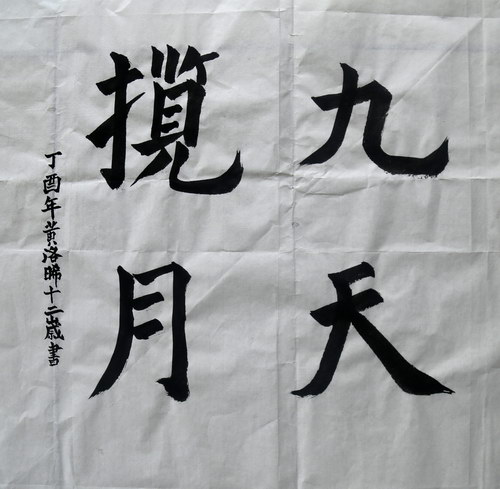 九天
攬月
丁酉年黄洛晞十二歲書